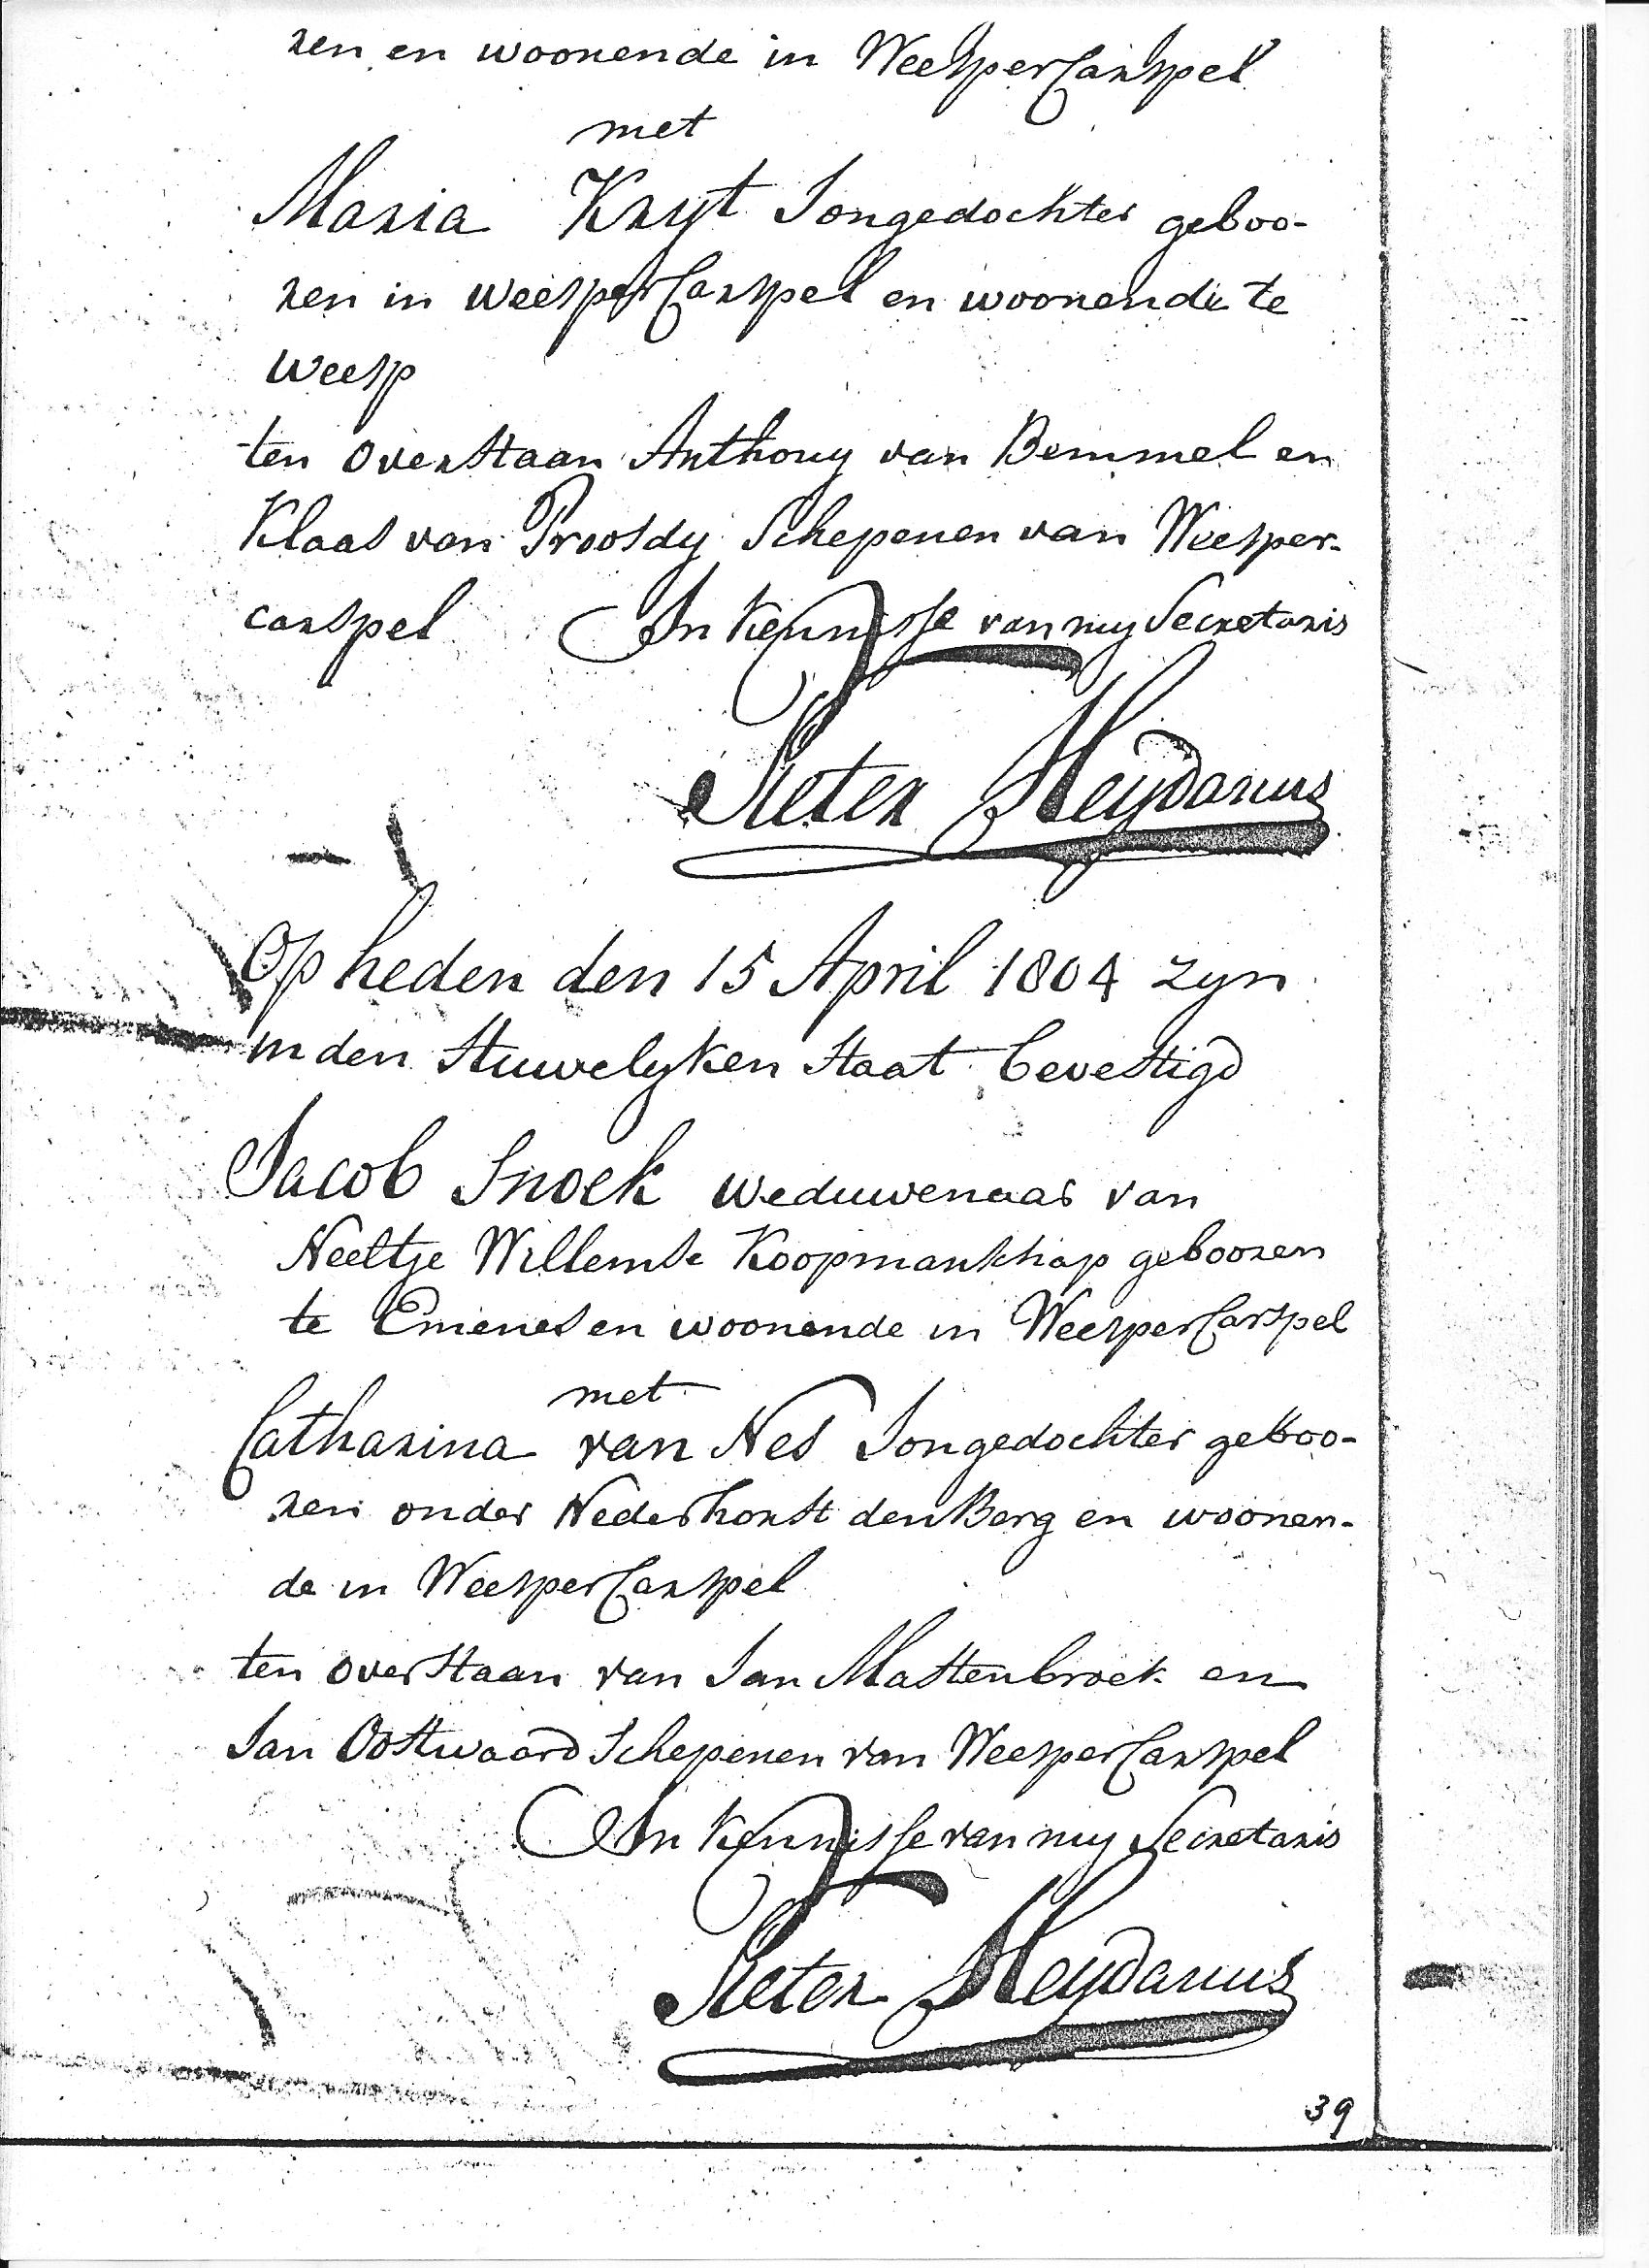 ren en woonende in WeesperCarspel
met
Maria Kryt Jongedochter geboo-
ren in weesperCarspel en woonende te
weesp
ten overstaan Anthony van Bemmel en
Klaas van Proosdy Schepenen van Weesper-
carspel In kennisse van my Secretaris
Pieter Heydanus
Op heden den 15 April 1804 zyn
in den Huwelyken Staat bevestigd
Jacob Snoek weduwenaar van
Neeltje Willemse Koopmanschap gebooren
te Emenes en woonende in WeesperCarspel
met
Catharina van Nes Jongedochter geboo-
ren onder Nederhorst den Berg en woonen-
de in WeesperCarspel
ten overstaan van Jan Mastenbroek en
Jan Oostwaard Schepenen van WeesperCarspel
In kennisse van my Secretaris
Pieter Heydanus
39